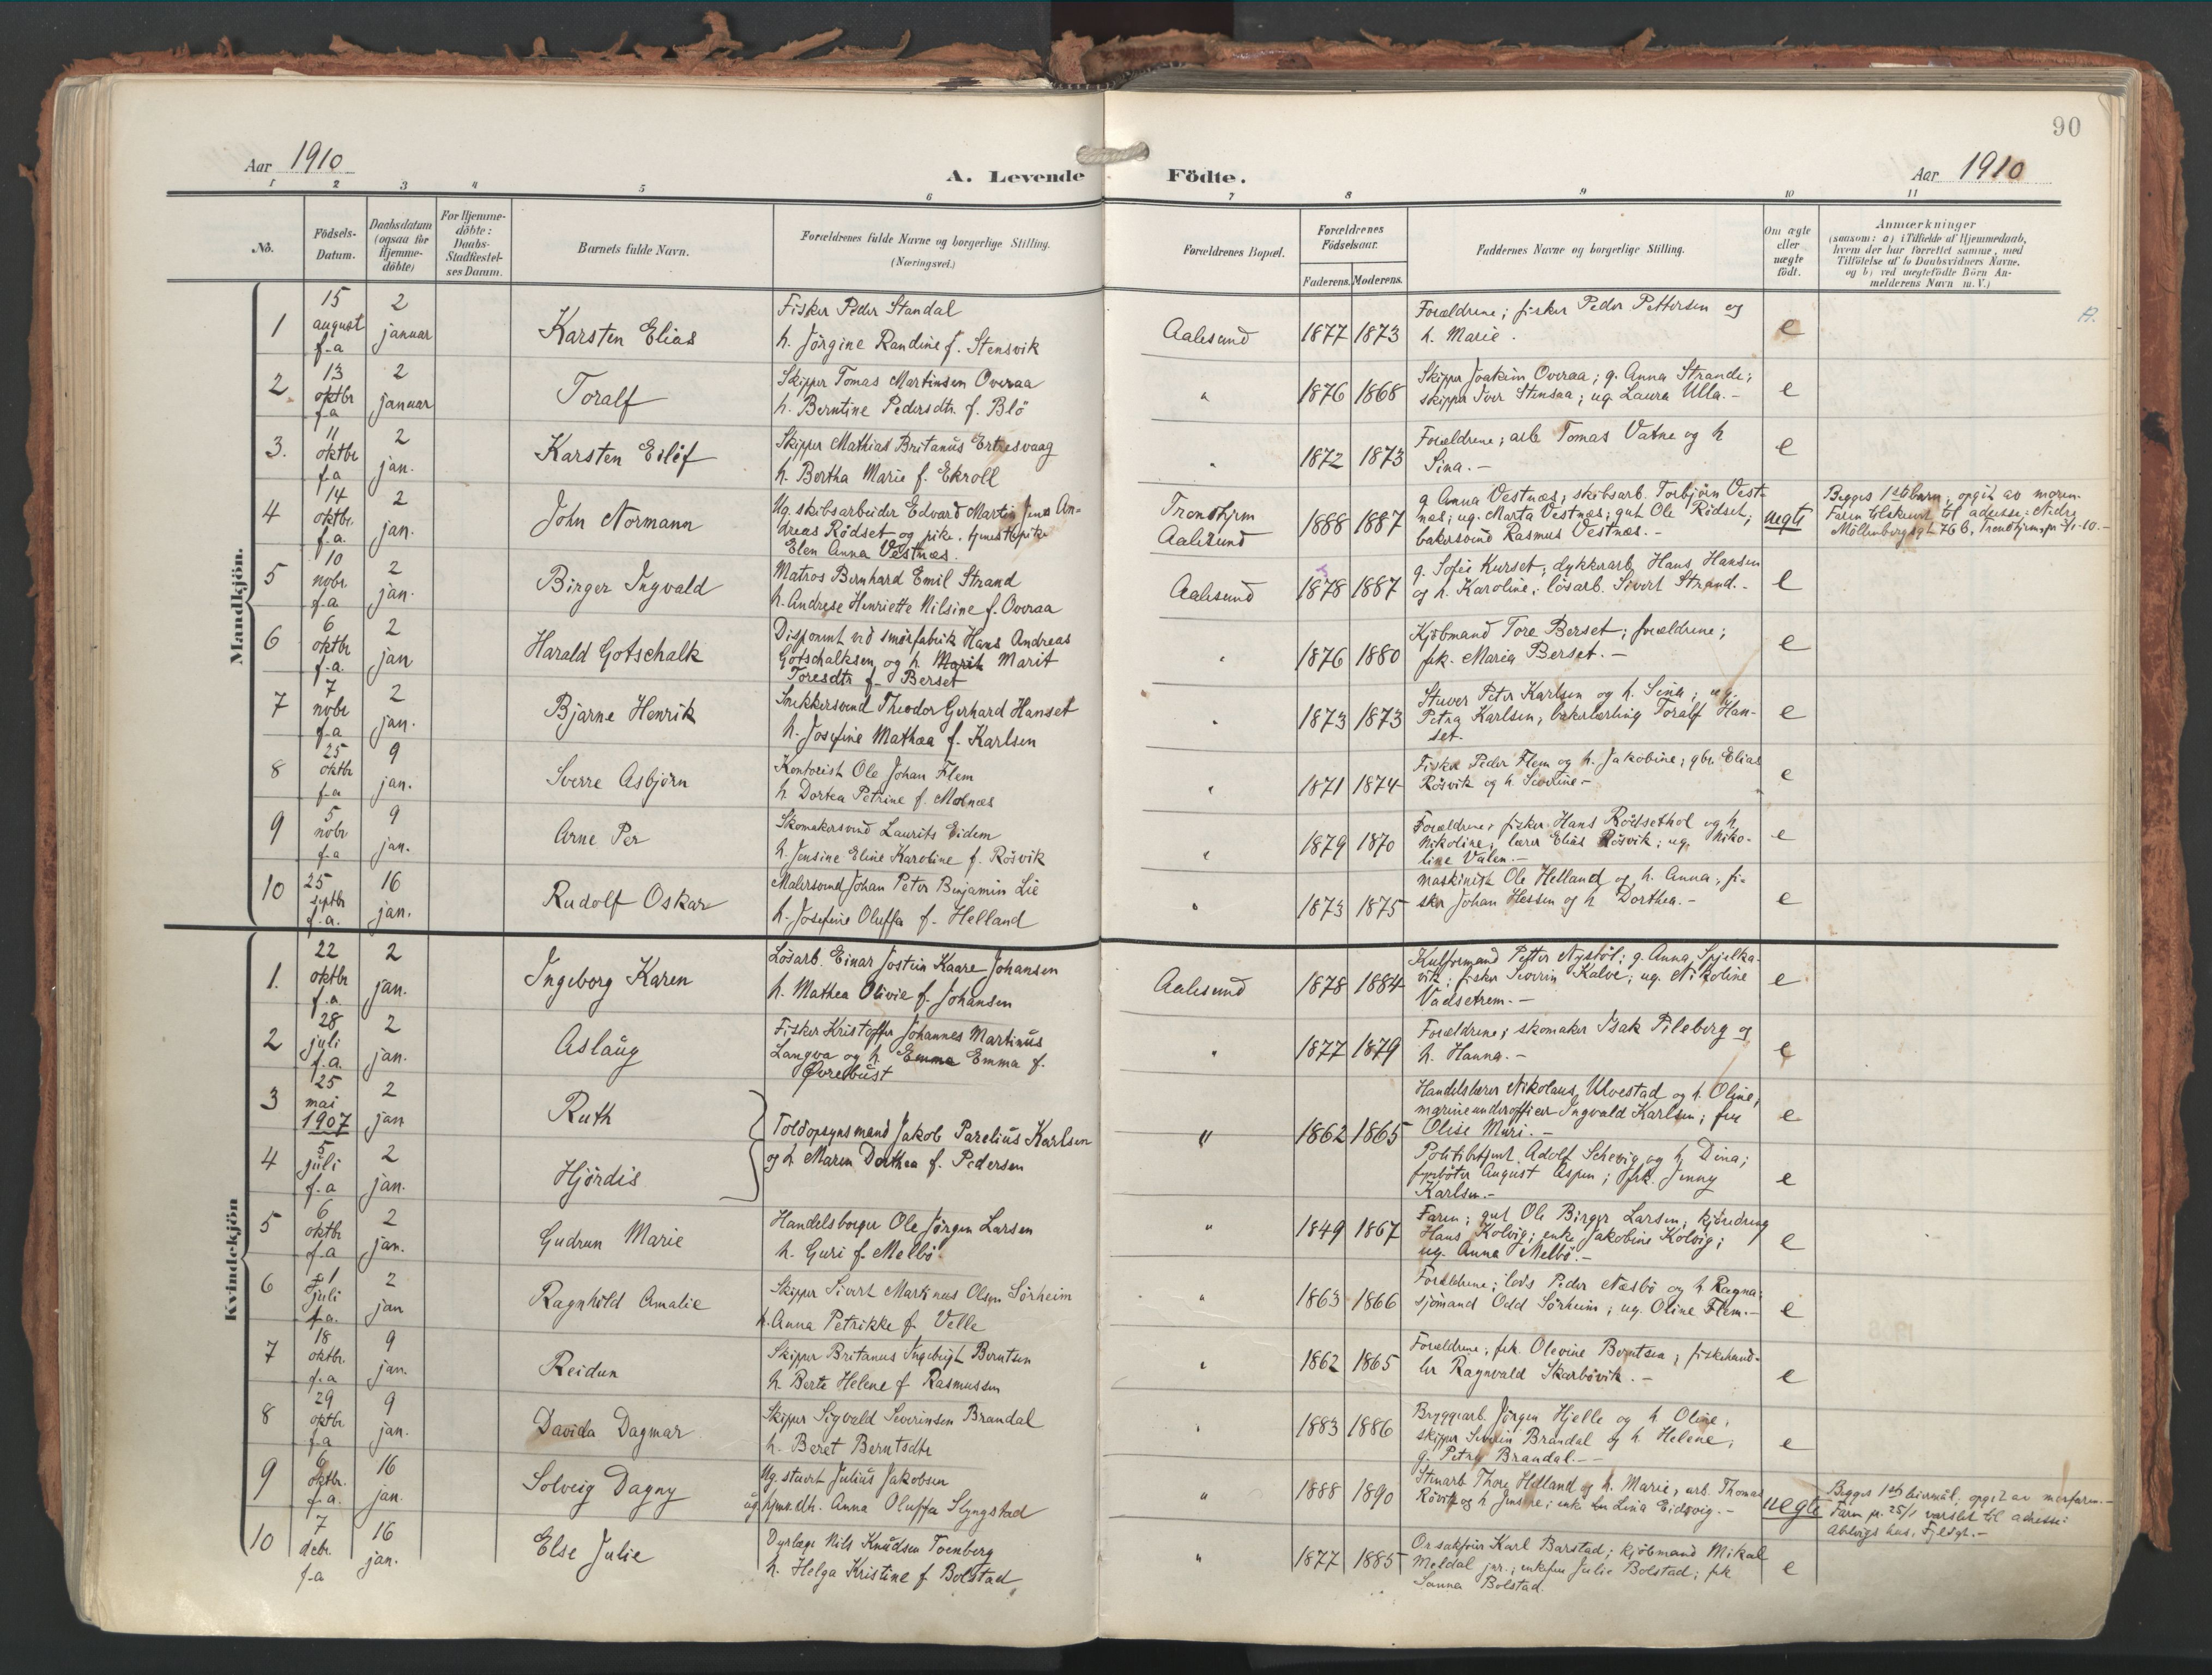 90
Aar 1910
A. Levende Födte.
Aar 1910
1 2 3 4 5 6 7 8 9 10 11
No.
Födsels-Datum.
Daabsdatum (ogsaa for Hjemme-döbte)
For Hjemme-döbte: Daabs-Stadfæstel-ses Datum.
Barnets fulde Navn.
Forældrenes fulde Navne og borgerlige Stilling.
(Næringsvei.)
Forældrenes Bopæl.
Forældrenes Födselsaar.
Faderens. Moderens.
Faddernes Navne og borgerlige Stilling.
Om ægte eller uægte födt.
Anmærkninger
(saasom: a) i Tilfælde af Hjemmedaab,
hvem der har forrettet samme, med
Tilföielse af to Daabsvidners Navne,
og b) ved uægtefödte Börn An-
melderens Navn m. V.)
Mandkjön.
1 15 august f.a 2 januar Karsten Elias
Fisker Peder Standal
h. Jörgine Randine f. Stensvik
Aalesund 1877 1873
Forældrene; fisker Peder Pettersen og
h. Marie.
e
2. 13 oktbr f.a 2 januar Toralf
Skipper Tomas Martinsen Overaa
h. Berntine Pedersdtr. f. Blö
" 1876 1868
Skipper Joakim Overaa; g. Anna Strande;
skipper Iver Stensaa; ug. Laura Ulla.-
e
3. 11 oktbr f.a 2 jan. Karsten Eilif
Skipper Mathias Britanus Ertresvaag
h. Bertha Marie f. Ekroll
" 1872 1873
Forældrene; arb Tomas Vatne og h
Sina.-
e
4 14 oktbr. f.a. 2 jan. John Normann
Ug. skibsarbeider Edvard Martin Jens An-
dreas Rödset og pike, tjenestepike
Elen Anna Vestnæs.
Trondhjem
Aalesund
1888 1887
g Anna Vestnæs; skibsarb. Torbjörn Vest-
næs; ug. Marta Vestnæs; gut Ole Rödset;
bakersvend Rasmus Vestnæs.-
uegte
Begges 1ste barn, opgit av moren.
Faren tilskrevet til adresse: Nedre
Möllenbergsgt 76 B, Trondhjem,
5 10 nobr. f.a 2 jan. Birger Ingvald
Matros Bernhard Emil Strand
h. Andrese Henriette Nilsine f. Overaa
Aalesund 1878 1887
g. Sofie Kurset; dykkerarb Hans Hansen
og h. Karoline; lösarb. Sivert Strand.-
e
6 6 oktbr f.a 2 jan Harald Gotschalk
Disponent ved smörfabrik Hans Andreas
Gotschalksen og h. Marit Marit
Toresdtr f. Berset
" 1876 1880
Kjöbmand Tore Berset; forældrene;
frk. Maria Berset.-
e
7 7 nobr f.a 2 jan. Bjarne Henrik
Snekkersvend Theodor Gerhard Hanset
h. Josefine Mathea f. Karlsen
" 1873 1873
Stuer Peter Karlsen og h. Sina; ug.
Petra Karlsen, bakerlærling Toralf Han-
set.
e
8 25 oktbr f.a 9 jan. Sverre Asbjörn
Kontorist Ole Johan Flem
h Dortea Petrine f. Molnæs
" 1871 1874
Fisker Peder Flem og h. Jakobine; gbr. Elias
Rösvik og h. Severine-
e
9 5 nobr f.a 9 jan. Arne Per
Skomakersvend Laurits Eidem
h. Jensine Eline Karoline f. Rösvik
" 1879 1870
Forældrene; fisker Hans Rödsethol og h
Nikoline; lærer Elias Rösvik; ug. Niko-
line Valen.-
e
10 25 septbr f.a. 16 jan. Rudolf Oskar
Malersvend Johan Peter Benjamin Lie
h. Josefine Oluffa f. Helland
" 1873 1875
maskinist Ole Helland og h. Anna; fi-
sker Johan Hessen og h Dorthea.-
e
Kvindekjön
1. 22 oktbr f.a. 2 jan. Ingeborg Karen
Lösarb. Einar Jostein Kaare Johansen
h. Mathea Olivie f. Johansen
Aalesund 1878 1884
Kulformand Petter Nystöl; g. Anna Spjelka-
vik; fisker Severin Kalve; ug. Nikoline
Vadsetrem.-
e
2 28 juli f.a. 2 jan. Aslaug
Fisker Kristoffer Johannes Martinus
Langva og h. Emma Emma f.
Øvrebust
" 1877 1879
Forældrene; skomaker Isak Pileberg og
h. Hanna.-
e
3 25 mai 1907 2 jan Ruth
Toldopsynsmand Jakob Parelius Karlsen
og h. Maren Dorthea f. Pedersen
" 1862 1865
Handelslærer Nikolaus Ulvestad og h. Oline;
marineunderofficer Ingvald Karlsen; fru
Olise Muri.-
e
4 5 juli f.a 2 jan. Hjördis
Politibetjent Adolf Schevig og h. Dina;
fyrböter August Aspen; frk. Jenny
Karlsen.-
e
5 6 oktbr f.a 2 jan. Gudrun Marie
Handelsborger Ole Jörgen Larsen
h. Guri f. Melbö.
" 1849 1867
Faren; gut Ole Birger Larsen;
Hans Kolvig; enke Jakobine Kolvig;
ug. Anna Melbö.-
e
6 juli f.a. 2 jan Ragnhild Amalie
Skipper Sivert Martinus Olsen Sörheim
h. Anna Petrikke f. Velle
" 1863 1866
Forældrene; lods Peder Næsbö og h Ragna;
sjömand Odd Sörheim; ug. Oline Flem.-
e
7 18 oktbr. f.a 9 jan. Reidun
Skipper Britanus Ingebrigt Berntsen
h. Berte Helene f Rasmussen
" 1862 1865
Forældrene; frk. Olevine Berntsen; fiskehand-
ler Ragnvald Skarbövik.-
e
8 29 oktbr. f.a 9 jan. Davida Dagmar
Skipper Sigvald Severinsen Brandal
h. Beret Berntsdtr
" 1883 1886
Bryggearb. Jörgen Hjelle og h Oline;
skipper Severin Brandal og h. Helene;
g. Petra Brandal.-
e
9 6 oktbr. f.a. 16 jan. Solveig Dagny
Ug. stuert Julius Jakobsen
ug. Anna Oluffa Slyngstad
" 1888 1890
Stenarb Thore Helland og h. Marie, arb. Thomas
Rövik og h Jensine; enke Lina Eidsvig.-
uegte
Begges 1ste leiermål, opgit av morfaren.-
Faren pr. 25/1 varslet til adresse:
10 7 debr. f.a 16 jan. Else Julie
Dyrlæge Nils Knudsen Toenberg
h. Helga Kristine f Bolstad
" 1877 1885
Orsakförer Karl Barstad; kjöbmand Mikal
Meldal jnr.; enkefru Julie Bolstad; frk
Sanna Bolstad.
e